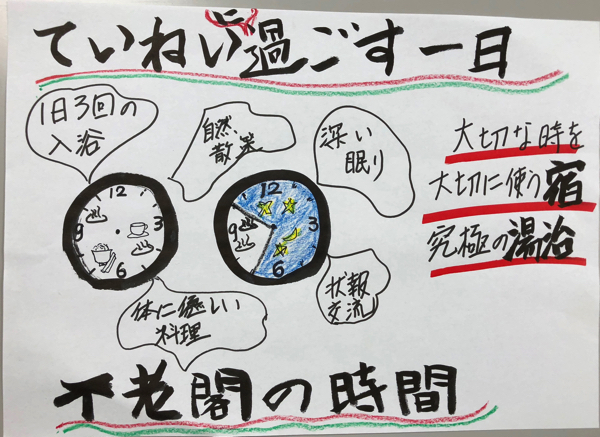 ていねいに過ごす一日
1日3回の
入浴
自然
散策
深い
眠り
大切な時を
大切に使う宿
究極の湯治
12
9 3
6
12
9 3
6
体に優しい
料理
状報
交流
不老閣の時間